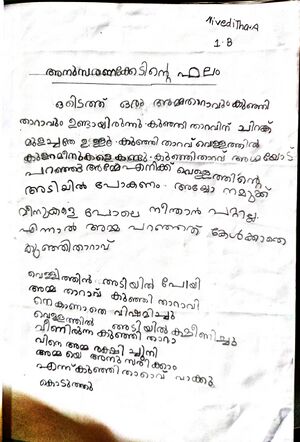 NivedithaA
1.B
അനുസരണക്കേടിന്റെ ഫലം
ഒരിടത്ത് ഒരു അമ്മതാറാവും കുഞ്ഞി
താറാവും ഉണ്ടായിരുന്നു കുഞ്ഞി താറാവിന് ചിറക്
മുളച്ചതേ ഉള്ളൂ കുഞ്ഞി താറാവ് വെള്ളത്തിൽ
കുറേമീനുകളെ കണ്ടു. കുഞ്ഞിതാറാവ് അമ്മയോട്
പറഞ്ഞു അമ്മേഎനിക്ക് വെള്ളത്തിന്റെ
അടിയിൽ പോകണം. അയ്യോ നമുക്ക്
മീനുകളെ പോലെ നീന്താൻ പറ്റില്ല.
എന്നാൽ അമ്മ പറഞ്ഞത് കേൾക്കാതെ
കുഞ്ഞിതാറാവ്
വെള്ളിത്തിൻ അടിയിൽ പോയി
അമ്മ താറാവ് കുഞ്ഞി താറാവി
നെകാണാതെ വിഷമിച്ചു
വെള്ളത്തിൽ അട്ടിയിൽ ക്ഷീണിച്ചു
വീണിരുന്ന കുഞ്ഞി താറാ
വിനെ അമ്മ രക്ഷി ച്ചു
അമ്മ യെ അനു സരിക്കാം
എന്ന് കുഞ്ഞി താറാവ് വാക്കു
കൊടുത്തു